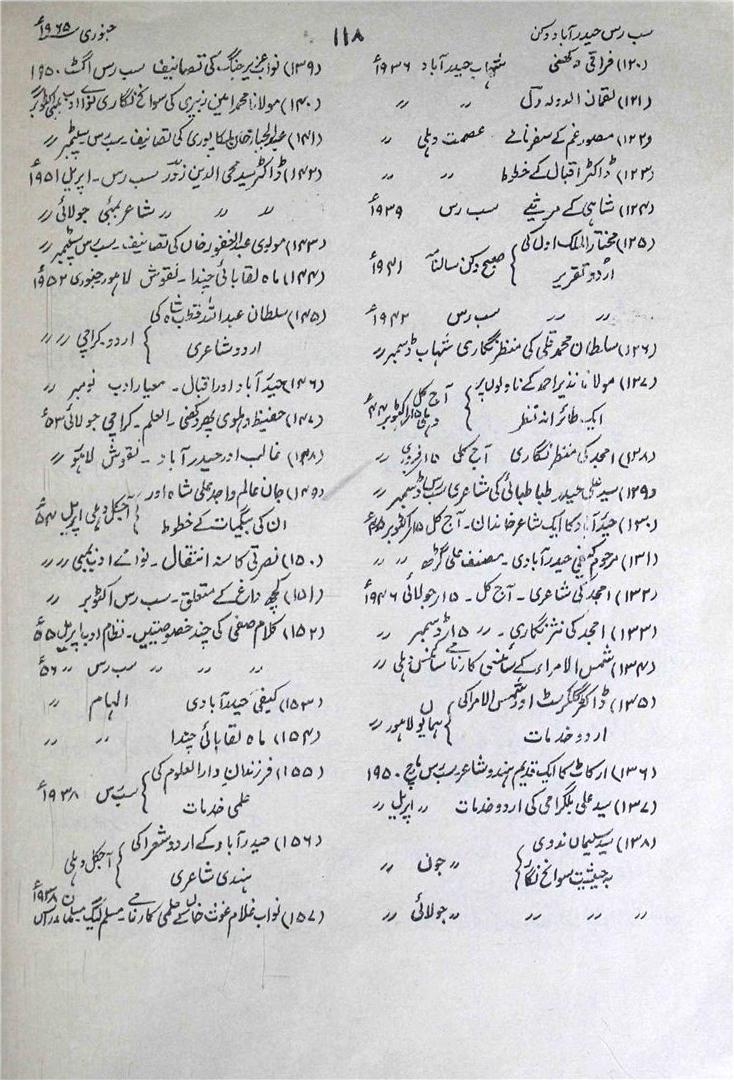 سب رس حیدرآباد دکن
۱۱۸
جنوری ۱۹۶۵ء
(۱۲۰) فراقی دکھنی شہاب حیدرآباد ۱۹۳۶ء
(۱۲۱) لقمان الدولہ دل 〃 〃
(۱۲۲) مصور غم کے سفرنامے عصمت دہلی 〃
(۱۲۳) ڈاکٹر اقبال کے خطوط 〃 〃
(۱۲۴) شاہی کے مرثیے سب رس ۱۹۳۹ء
(۱۲۵) مختار الملک اول کی
اردو تقریر } صبح دکن سالنامہ ۱۹۴۱ء
〃 〃 سب رس ۱۹۴۲ء
(۱۲۶) سلطان محمد قلی کی منظر نگاری شہاب ڈسمبر 〃
(۱۲۷) مولانا نذیر احمد کے ناولوں پر
ایک طائرانہ نظر } آج کل دہلی ۱۵ اکتوبر ۴۴ء
(۱۲۸) امجد کی منظر نگاری آج کل ۱۵ فروری 〃
(۱۲۹) سید علی حیدر طباطبائی کی شاعری سب رس ڈسمبر 〃
(۱۳۰) حیدرآباد کا ایک شاعر خاندان۔ آج کل ۱۵ اکتوبر ۴۵ء
(۱۳۱) مرحوم کیفی حیدرآبادی۔ مصنف علی گڑھ 〃 〃
(۱۳۲) امجد کی شاعری۔ آج کل۔ ۱۵ جولائی ۱۹۴۶ء
(۱۳۳) امجد کی نثر نگاری۔ 〃 ۱۵ ڈسمبر 〃
(۱۳۴) شمس الامراء کے سائنسی کارنامے سائنس دہلی 〃
(۱۳۵) ڈاکٹر گلکرسٹ اور شمس الامرا کی
اردو خدمات } ہمایوں لاہور 〃
(۱۳۶) ارکاٹ کا ایک قدیم ہندو شاعر سب رس مارچ ۱۹۵۰
(۱۳۷) سید علی بلگرامی کی اردو خدمات 〃 اپریل 〃
(۱۳۸) سید سلیمان ندوی
بہ حیثیت سوانح نگار } 〃 جون 〃
〃 〃 〃 〃 جولائی 〃
(۱۳۹) نواب عزیز جنگ کی تصانیف سب رس اگست ۱۹۵۰
(۱۴۰) مولانا محمد امین زبیری کی سوانح نگاری نوائے ادب بمبئی اکتوبر
(۱۴۱) عبدالجبار خاں ملکاپوری کی تصانیف۔ سب رس۔ سپٹمبر 〃
(۱۴۲) ڈاکٹر سید محی الدین زور سب رس۔ اپریل ۱۹۵۱ء
〃 〃 〃 شاعر بمبئی جولائی 〃
(۱۴۳) مولوی عبدالغفور خاں کی تصانیف۔ سب رس سپٹمبر 〃
(۱۴۴) ماہ لقا بائی چندا۔ نقوش لاہور جنوری ۱۹۵۲ء
(۱۴۵) سلطان عبداللہ قطب شاہ کی
اردو شاعری } اردو کراچی 〃 〃
(۱۴۶) حیدرآباد اور اقبال۔ معیار ادب نومبر 〃
(۱۴۷) حفیظ دہلوی پھر دکھنی۔ العلم۔ کراچی جولائی ۵۳ء
(۱۴۸) غالب اور حیدرآباد۔ نقوش لاہور 〃
(۱۴۹) جان عالم واجد علی شاہ اور
ان کی بیگمات کے خطوط } آجکل دہلی اپریل ۵۴ء
(۱۵۰) نصرتی کا سنہ انتقال۔ نوائے ادب بمبئی 〃 〃
(۱۵۱) کچھ داغ کے متعلق۔ سب رس اکتوبر 〃
(۱۵۲) کلام صفی کی چند خصوصیتیں۔ نظام ادب اپریل ۵۵ء
〃 〃 〃 〃 سب رس 〃 ۵۶ء
(۱۵۳) کیفی حیدرآبادی الہام 〃
(۱۵۴) ماہ لقا بائی چندا 〃 〃
(۱۵۵) فرزندان دارالعلوم کی
علمی خدمات } سب رس ۱۹۳۸ء
(۱۵۶) حیدرآباد کے اردو شعرا کی
ہندی شاعری } آجکل دہلی
(۱۵۷) نواب غلام غوث خاں کے علمی کارنامے۔ مسلم لیگ مدراس ۱۹۳۸ء